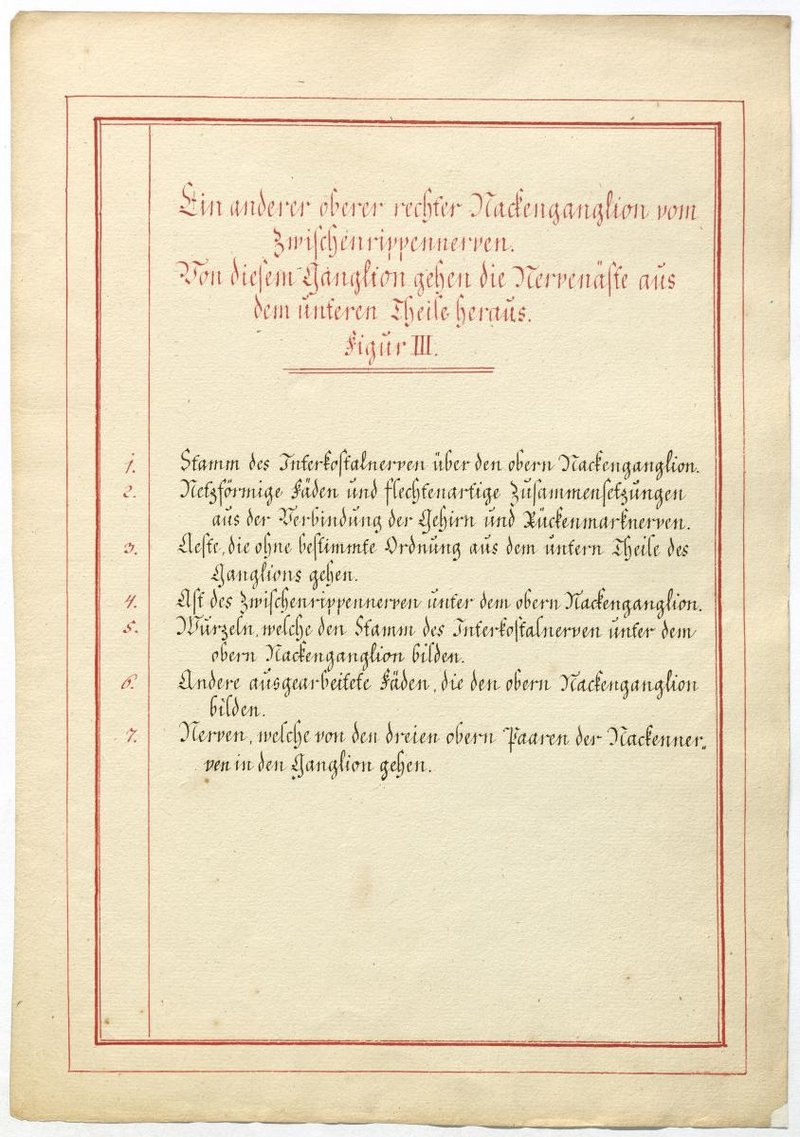 Ein anderer oberer rechter Nackenganglion vom
Zwischenrippennerven.
Von diesem Ganglion gehen die Nervenäste aus
dem unteren Theile heraus.
Figur III.
1. Stamm des Interkostalnerven über den obern Nackenganglion.
2. Netzförmige Fäden und flechtenartige Zusammensetzungen
aus der Verbindung der Gehirn und Rückenmarknerven.
3. Aeste, die ohne bestimmte Ordnung aus dem untern Theile des
Ganglions gehen.
4. Ast des Zwischenrippennerven unter dem obern Nackenganglion.
5. Wurzeln, welche den Stamm des Interkostalnerven unter dem
obern Nackenganglion bilden.
6. Andere ausgearbeitete Fäden, die den obern Nackenganglion
bilden.
7. Nerven, welche von den dreien obern Paaren der Nackenner„
ven in den Ganglion gehen.